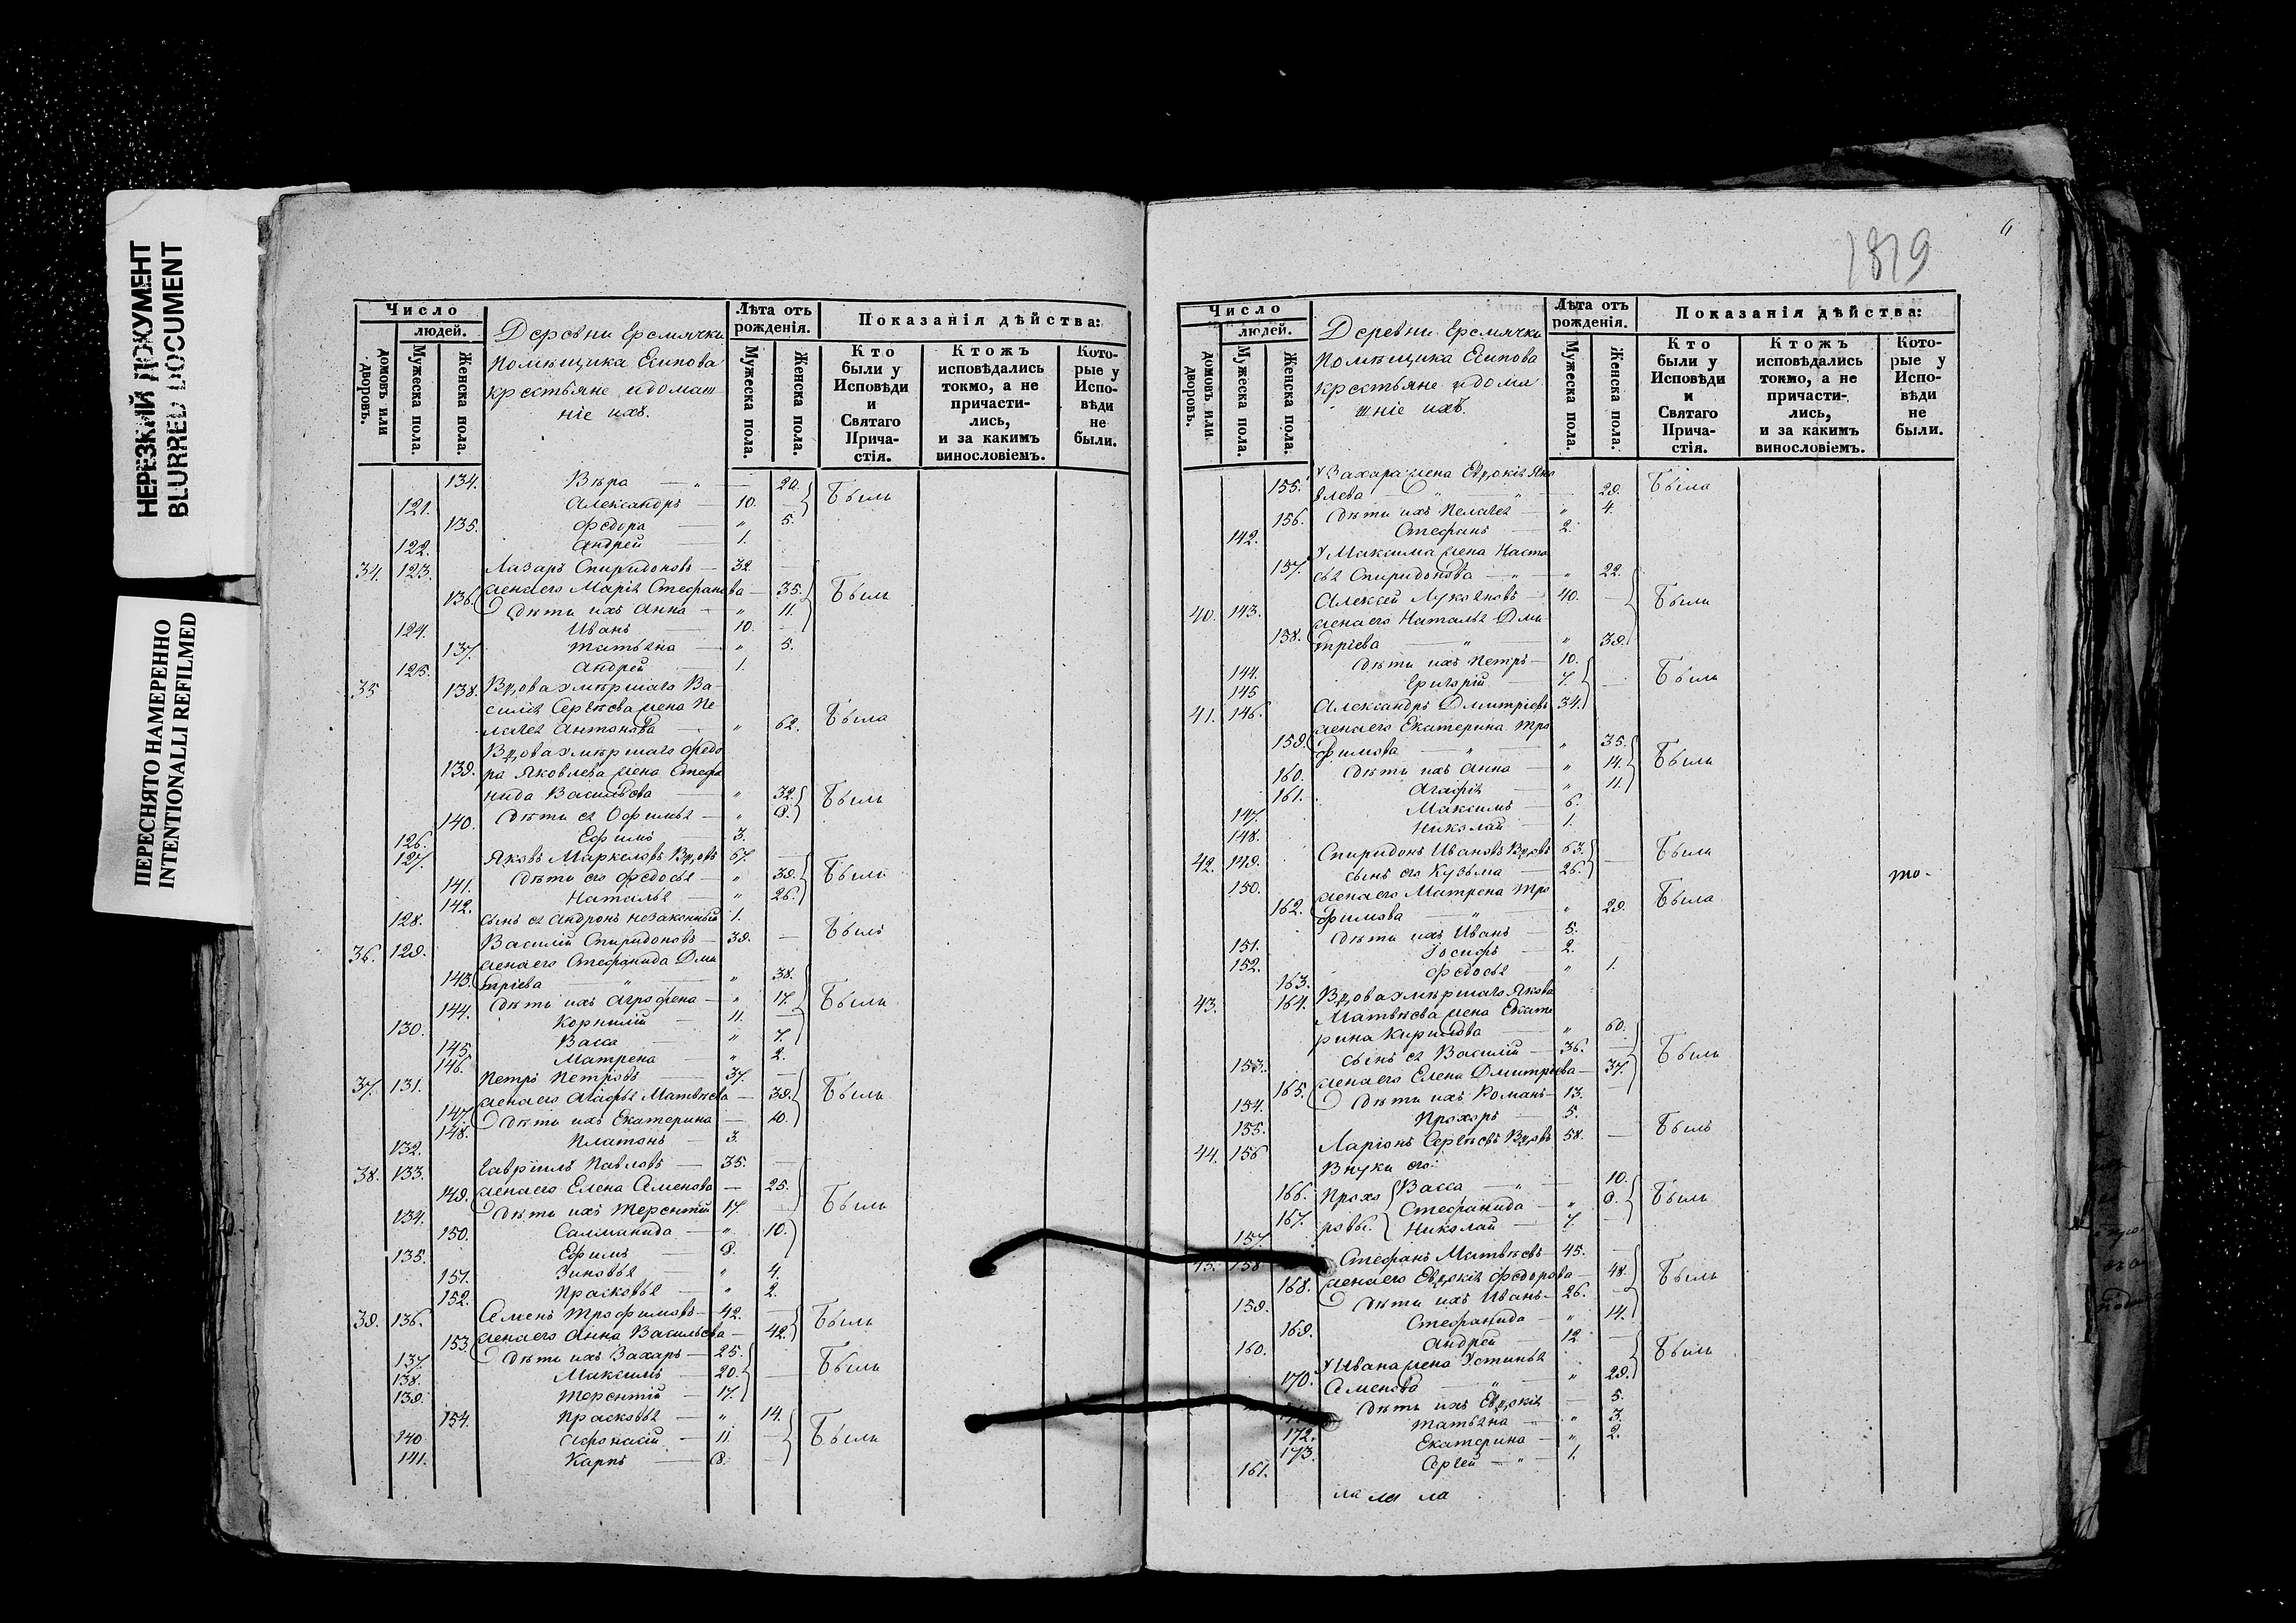 НЕРЕЗКИЙ ДОКУМЕНТ
BLURRED DOCUMENT
ПЕРЕСНЯТО НАМЕРЕННО
INTENTIONALLI REFILMED
Число
людей.
домовъ или дворовъ.
Мужеска пола.
Женска пола.
Деревни Еремячки
помѣщика Есипова
крестьяне и домаш
ніе ихъ.
Лѣта отъ рожденія.
Мужеска пола.
Женска пола.
Показанія дѣйства:
Кто были у Исповѣди и Святаго Прича-стія.
Ктожъ исповѣдались токмо, а не причасти-лись, и за какимъ винословіемъ.
Кото-рые у Испо-вѣди не были.
134. Вѣра — „ — 20. Были
121. Александръ — 10.
135. Федора — „ 5.
122. Андрей — 1.
34. 123. Лазарь Спиридоновъ — 32.
136. жена его Марія Стефанова — 35. Были
Дѣти ихъ Анна — „ 11.
124. Иванъ — 10.
137. Татьяна — „ 5.
125. Андрей — 1.
35 138. Вдова умершаго Ва-
силія Сергѣева жена Пе-
лагея Антонова — „ 62. Была
Вдова умершаго Федо
139. ра Яковлева жена Стефа
нида Васильева — „ 32. Были
140. Дѣти ея Офимья — „ 8.
126. Ефимъ — 3.
127. Яковъ Маркеловъ Вдовъ 67.
141. Дѣти его Федосья — „ 39. Были
142. Наталья — „ 26.
128. сынъ ея Андронъ незаконный 1.
36. 129. Василій Спиридоновъ — 39. — Былъ
жена его Стефанида Дми
143. тріева — „ — „ 38.
144. Дѣти ихъ Агрофена — „ 17. Были
130. Корнилій — 11.
145. Васса — „ 7.
146. Матрена — „ 2.
37. 131. Петръ Петровъ — 37. —
147. жена его Агафья Матвѣева — 39. Были
148. Дѣти ихъ Екатерина — 10.
132. Платонъ — 3.
38. 133. Гавріилъ Павловъ — 35. —
149. жена его Елена Семенова — 25.
134. Дѣти ихъ Терентій 17. Были
150. Саломанида — „ 10.
135. Ефимъ — 8.
151. Зиновья — „ 4.
152. Прасковья — „ 2.
39. 136. Семенъ Трофимовъ — 42. —
153. жена его Анна Васильева — 42. Были
137. Дѣти ихъ Захаръ — 25.
138. Максимъ — 20. Были
139. Терентій — 17.
154. Прасковья — „ 14.
140 Афонасій — 11 Были
141. Карпъ — 8.
1819
Число
людей.
домовъ или дворовъ.
Мужеска пола.
Женска пола.
Деревни Еремячки
помѣщика Есипова
крестьяне и дома
шніе ихъ.
Лѣта отъ рожденія.
Мужеска пола.
Женска пола.
Показанія дѣйства:
Кто были у Исповѣди и Святаго Прича-стія.
Ктожъ исповѣдались токмо, а не причасти-лись, и за какимъ винословіемъ.
Кото-рые у Испо-вѣди не были.
У Захара жена Евдокія Яко
155. влева — „ — „ — 29. Была
156. Дѣти ихъ Пелагея — „ 4.
142. Стефанъ — 2.
У Максима жена Наста
157. сья Спиридонова — „ — „ 22.
40. 143. Алексей Лукояновъ — 40. — Были
жена его Наталья Дми
158. тріева — „ — „ 39.
144. Дѣти ихъ Петръ — 10.
145 Григорій — 7. — Были
41. 146. Александръ Дмитріевъ 34.
жена его Екатерина Тро
159. фимова — „ — „ 35.
160. Дѣти ихъ Анна — „ 14. Были
161. Агафья — „ 11.
147. Максимъ — 6.
148. Николай — 1.
42. 149. Спиридонъ Ивановъ Вдовъ 63. Были
150. сынъ его Кузьма — 26. —
то-
жена его Матрена Тро
162. фимова — „ — „ 29. Была
151. Дѣти ихъ Иванъ — 5.
152. Іосифъ — 2.
163. Федосья — „ 1.
43. 164. Вдова умершаго Якова
Матвѣева жена Екате
рина Кирилова — „ 60.
153. сынъ ея Василій — 36. — Были
165. жена его Елена Дмитріева — 37.
154. Дѣти ихъ Романъ — 13.
155. Прохоръ — 5.
44. 156 Ларіонъ Сергѣевъ Вдовъ 58. — Былъ
Внуки его:
166. Прохо Васса — „ — 10.
167. ровы. Стефанида — „ 8. Были
157 Николай — 7. —
45. 158 Стефанъ Матвѣевъ 45. —
168. жена его Евдокія Федорова — 48. Были
159. Дѣти ихъ Иванъ — 26. —
169. Стефанида — „ 14.
160. Андрей — 12 —
У Ивана жена Устинья Были
170. Семенова — „ 29.
Дѣти ихъ Евдокія — 5.
172. Татьяна — „ 3.
173. Екатерина — „ 2.
161. Сергей — „ — 1.
ла ла ла